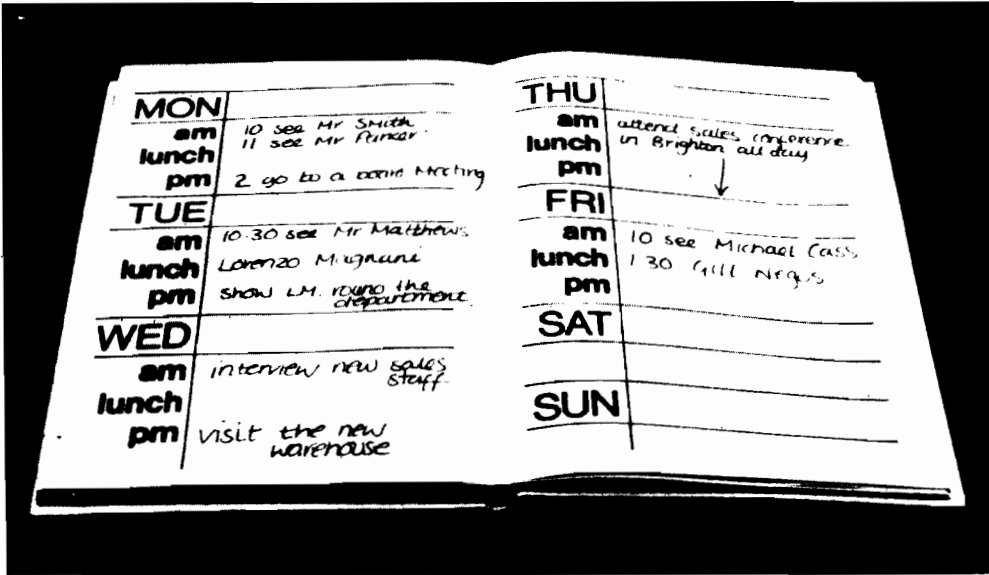 MON
am 10 see Mr Smith
11 see Mr Parker
lunch
pm 2 go to a board Meeting
TUE
am 10.30 see Mr Matthews
lunch Lorenzo Magnani
pm show L.M. round the
department
WED
am interview new sales
staff
lunch
pm visit the new
warehouse
THU
am attend sales conference
lunch in Brighton all day
pm
FRI
am 10 see Michael Cass
lunch 1 30 Gill Negus
pm
SAT
SUN